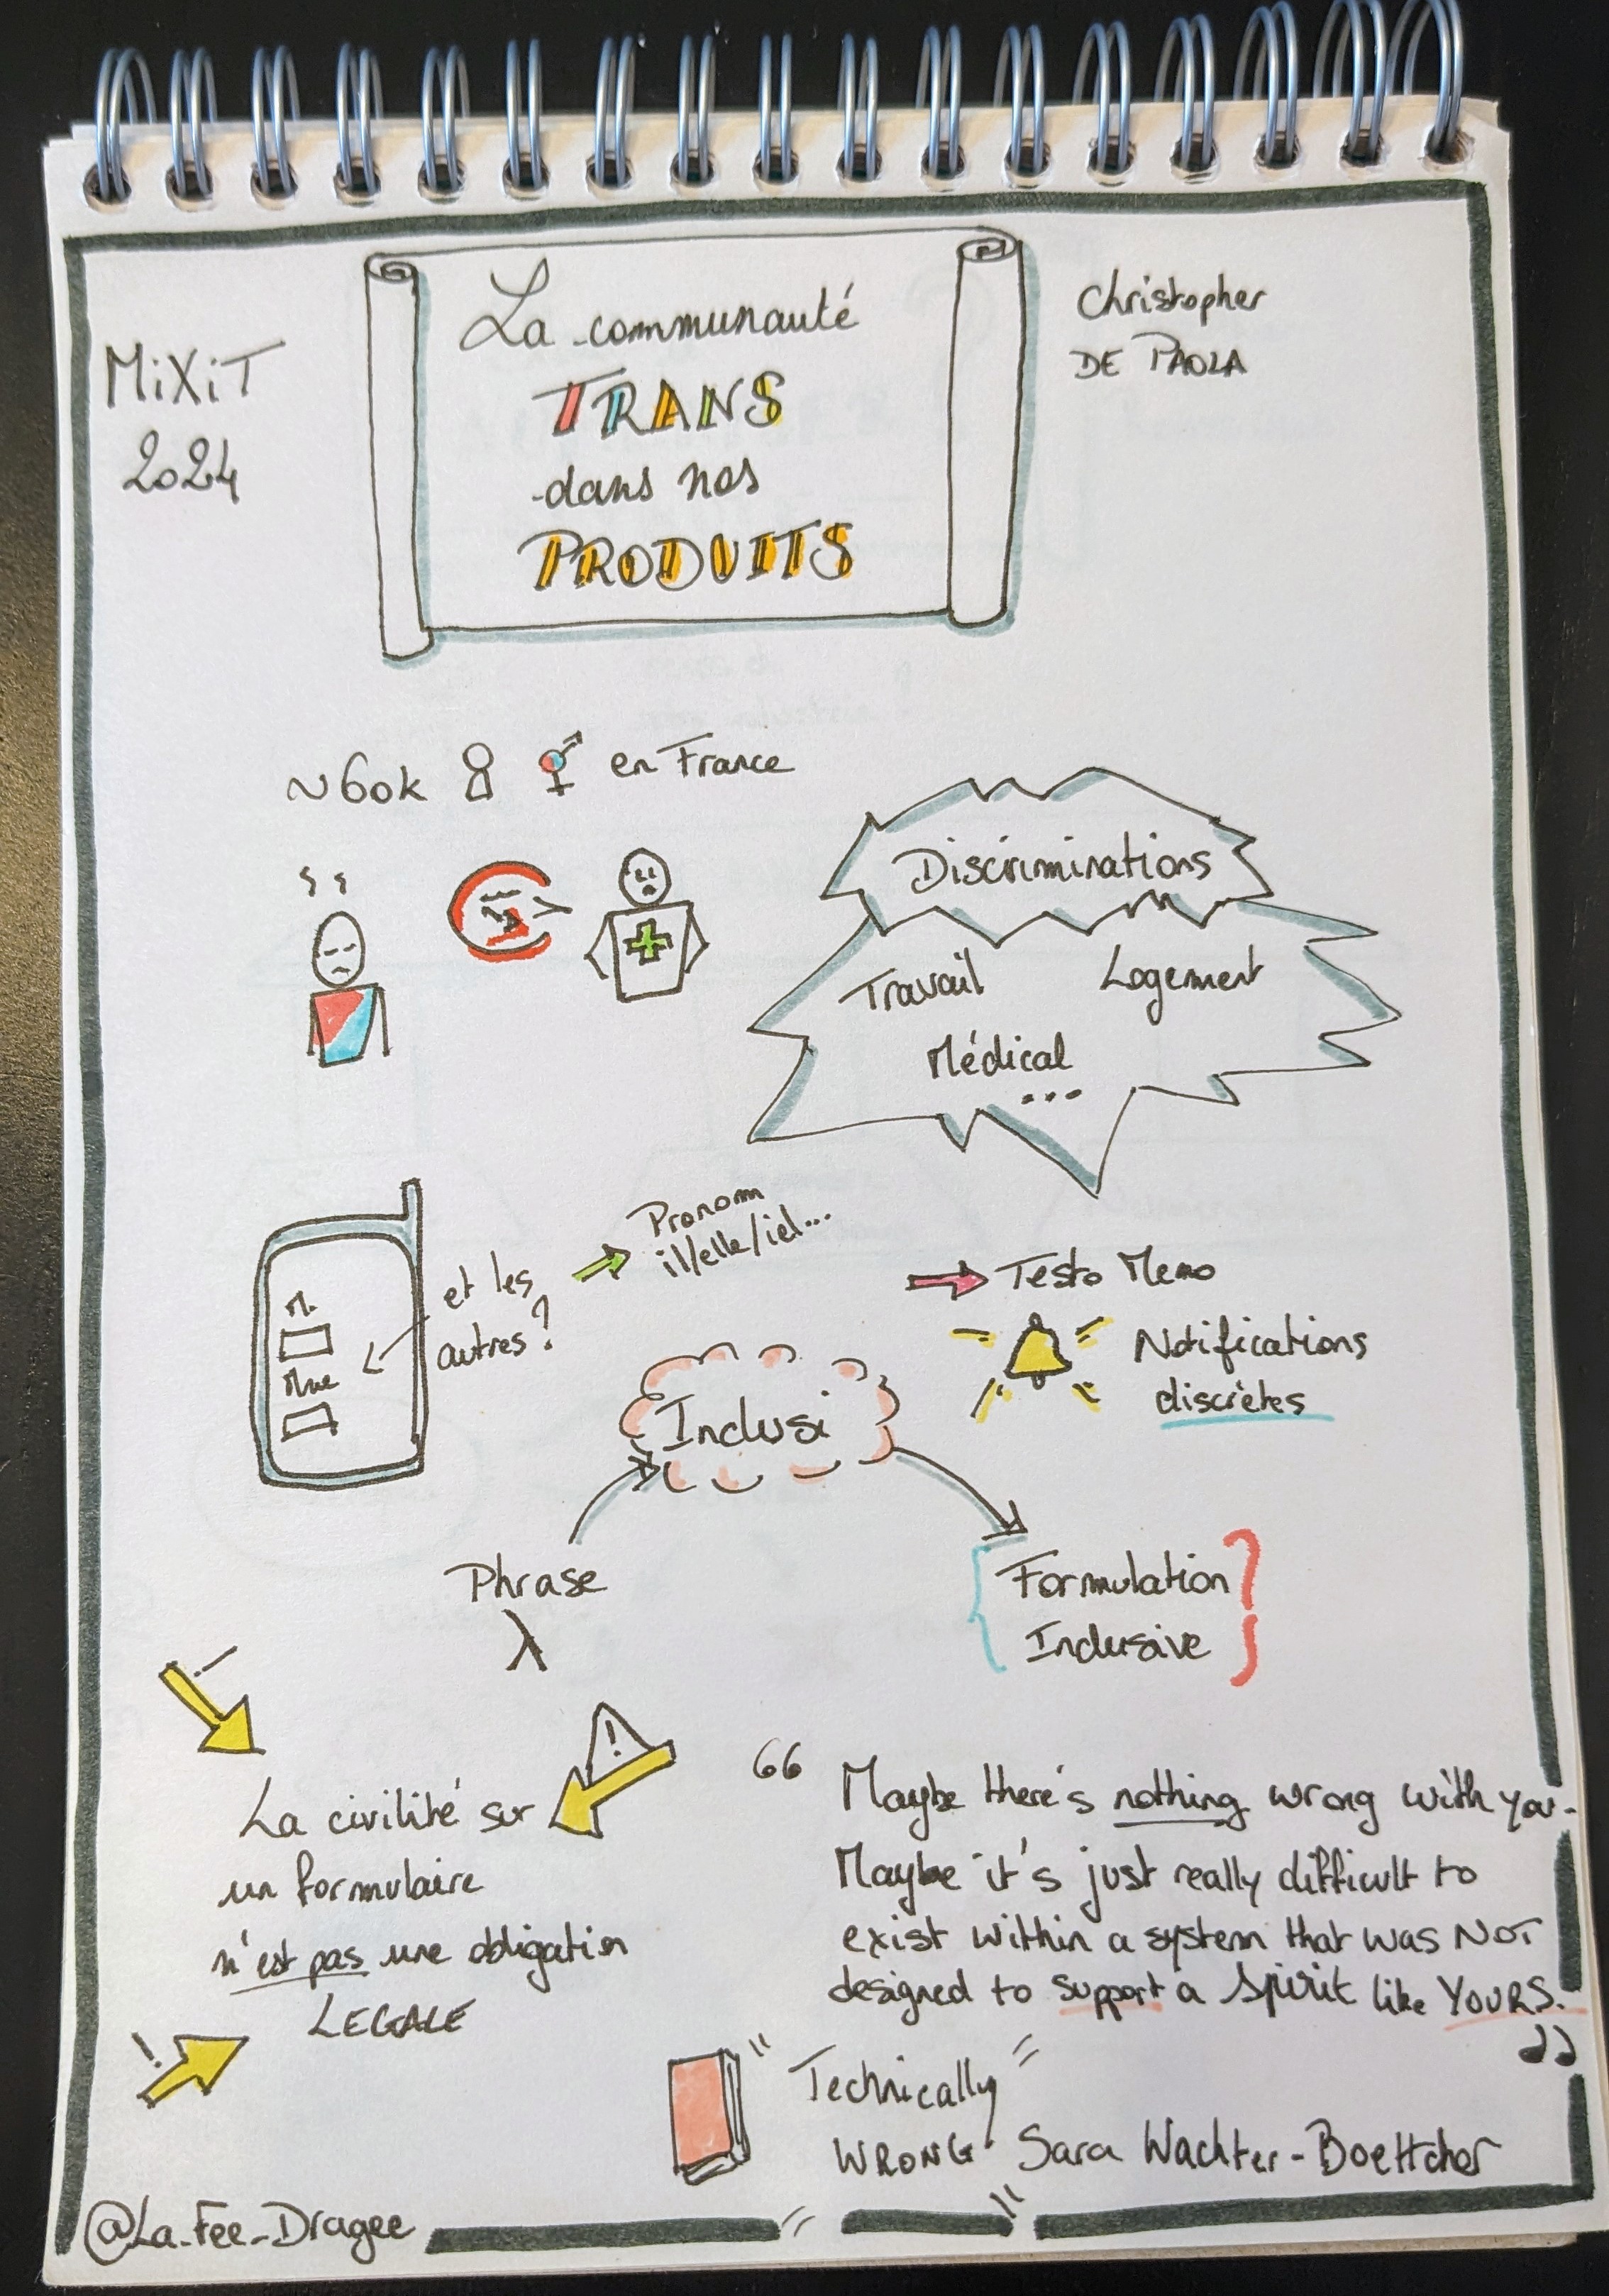 MiXiT
2024
La communauté
TRANS
dans nos
PRODUITS
Christopher
DE PAOLA
~60k en France
Discriminations
Travail Logement
Médical
...
M.
Mme
et les
autres ?
Pronom
il/elle/iel...
Testo Memo
Notifications
discrètes
Inclusi
Phrase
λ
Formulation
Inclusive
!
La civilité sur
un formulaire
n'est pas une obligation
LEGALE
!
“ Maybe there's nothing wrong with you.
Maybe it's just really difficult to
exist within a system that was NOT
designed to support a spirit like YOURS.
”
" Technically "
WRONG Sara Wachter-Boettcher
@La_Fee_Dragee